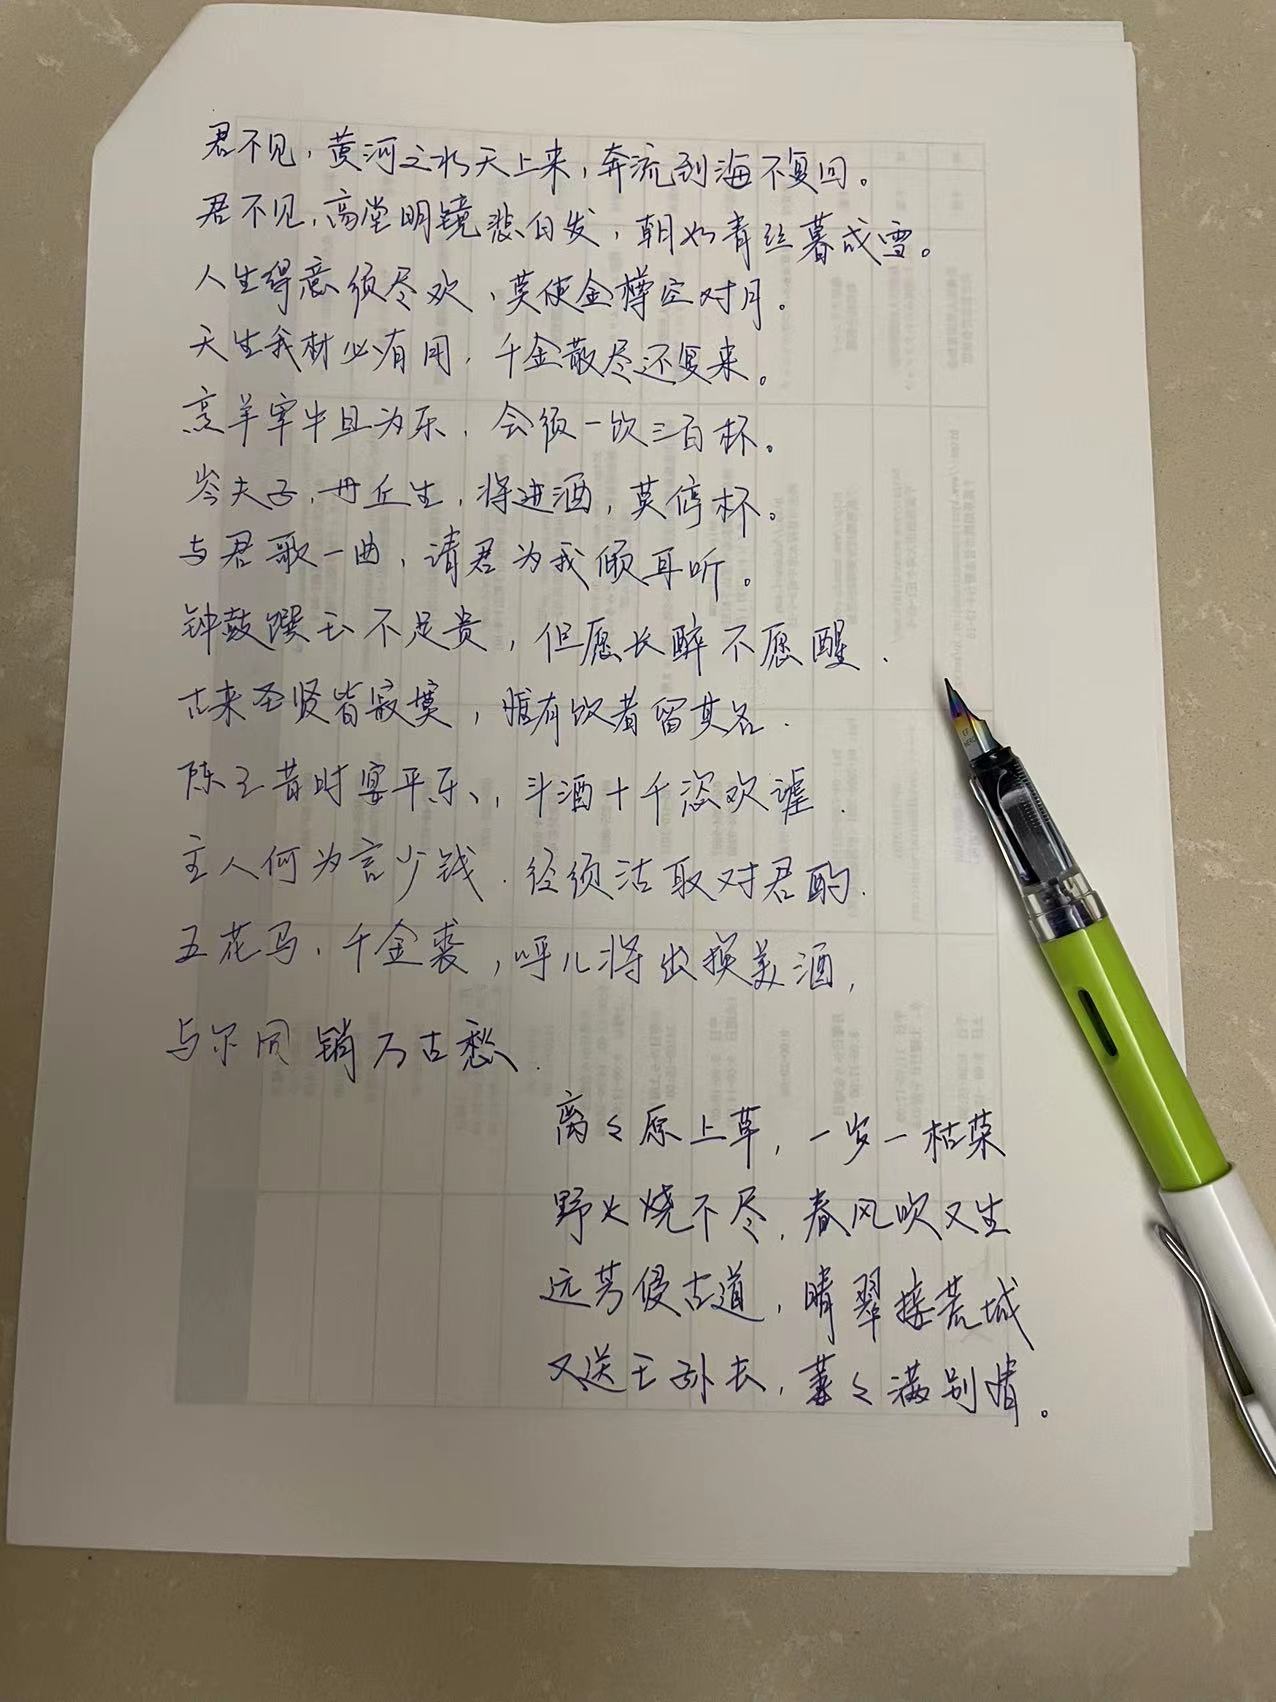 君不见，黄河之水天上来，奔流到海不复回。
君不见，高堂明镜悲白发，朝如青丝暮成雪。
人生得意须尽欢，莫使金樽空对月。
天生我材必有用，千金散尽还复来。
烹羊宰牛且为乐，会须一饮三百杯。
岑夫子，丹丘生，将进酒，莫停杯。
与君歌一曲，请君为我倾耳听。
钟鼓馔玉不足贵，但愿长醉不愿醒.
古来圣贤皆寂寞，惟有饮者留其名.
陈王昔时宴平乐，斗酒十千恣欢谑.
主人何为言少钱.径须沽取对君酌.
五花马，千金裘，呼儿将出换美酒，
与尔同销万古愁.
离々原上草，一岁一枯荣
野火烧不尽，春风吹又生
远芳侵古道，晴翠接荒城
又送王孙去，萋々满别情。